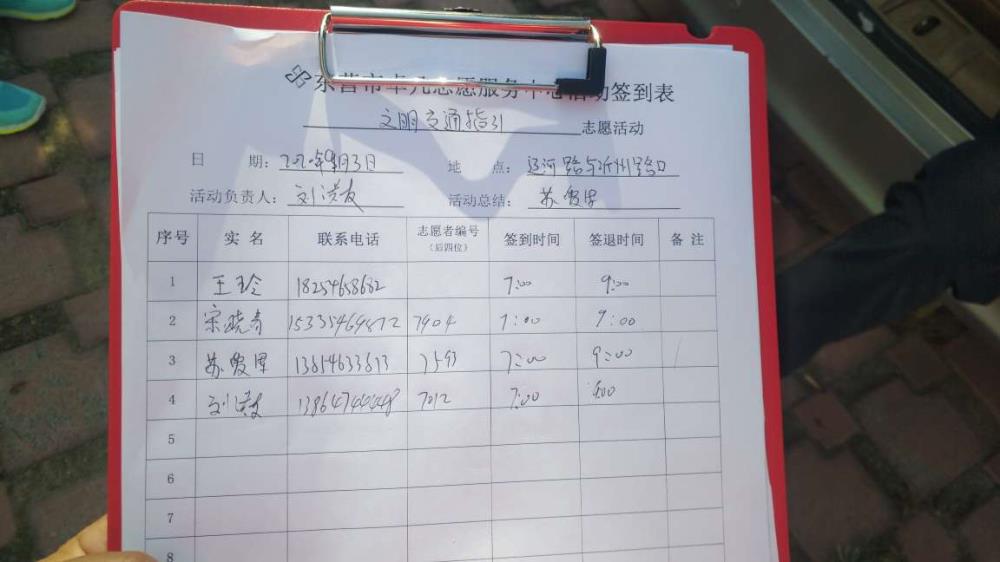 东营市卓凡志愿服务中心活动签到表
文明交通指引 志愿活动
日 期: 月3日 地 点: 运河路与沂州路口
活动负责人: 刘洪友 活动总结: 苏爱军
序号 实名 联系电话 志愿者编号 (后四位) 签到时间 签退时间 备注
1 王玲 18254658682 7:00 9:00
2 宋晓青 15335464872 7904 7:00 9:00
3 苏爱军 13854633873 7593 7:00 9:00
4 刘洪友 13864744448 7012 7:00 9:00
5
6
7
8